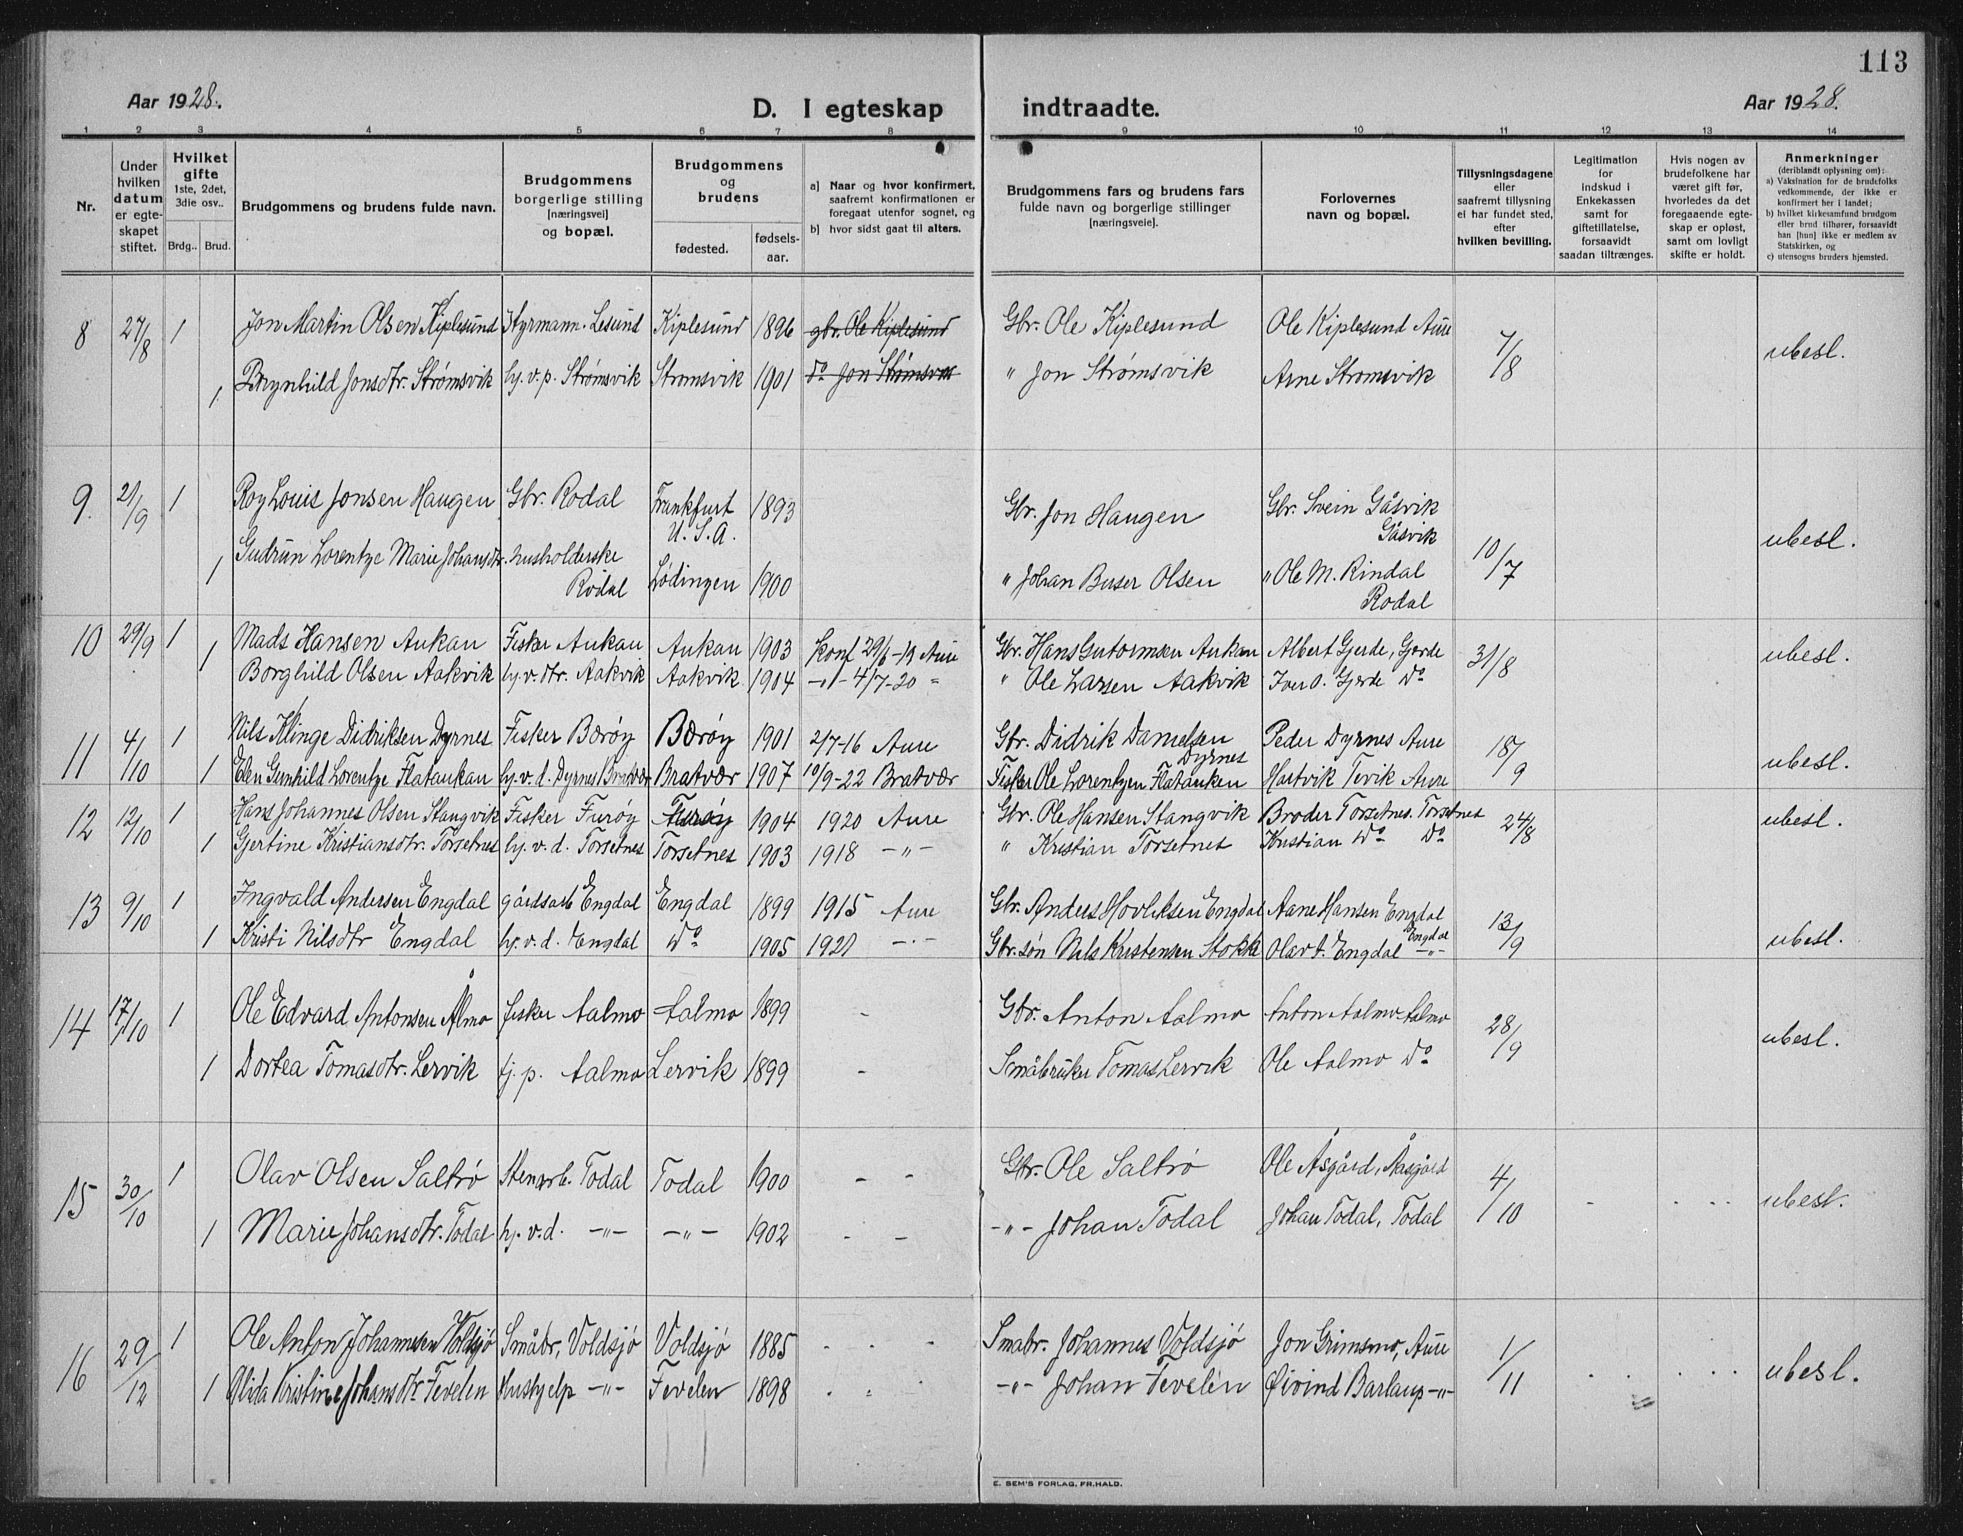 113
Aar 1928.
D. I egteskap indtraadte.
Aar 1928.
1 2 3 4 5 6 7 8 9 10 11 12 13 14
Nr.
Under hvilken datum er egte- skapet stiftet.
Hvilket gifte 1ste, 2det, 3die osv..
Brdg.. Brud.
Brudgommens og brudens fulde navn.
Brudgommens borgerlige stilling [næringsvei] og bopæl.
Brudgommens og brudens
fødested. fødsels- aar.
a) Naar og hvor konfirmert, saafremt konfirmationen er foregaat utenfor sognet, og
b) hvor sidst gaat til alters.
Brudgommens fars og brudens fars fulde navn og borgerlige stillinger [næringsveie].
Forlovernes navn og bopæl.
Tillysningsdagene eller saafremt tillysning ei har fundet sted, efter hvilken bevilling.
Legitimation for indskud i Enkekassen samt for giftetillatelse, forsaavidt saadan tiltrænges.
Hvis nogen av brudefolkene har været gift før, hvorledes da det foregaaende egte- skap er opløst, samt om lovligt skifte er holdt.
Anmerkninger (deriblandt oplysning om):
a) Vaksination for de brudefolks vedkommende, der ikke er konfirmert her i landet;
b) hvilket kirkesamfund brudgom eller brud tilhører, forsaavidt han [hun] ikke er medlem av Statskirken, og
c) utensogns bruders hjemsted.
8 27/8 1 Jon Martin Olsen Kiplesund Styrmann. Lesund Kiplesund 1896 gbr. Ole Kiplesund Gbr. Ole Kiplesund Ole Kiplesund Aure 7/8 ubesl.
1 Brynhild Jonsdtr. Strømsvik hj. v. p. Strømsvik Strømsvik 1901 do Jon Strømsvik " Jon Strømsvik Arne Strømsvik
9. 21/9 1 Roy Louis Jonsen Haugen Gbr. Rodal Frankfurt U.S.A. 1893 Gbr. Jon Haugen Gbr. Svein Gåsvik Gåsvik 10/7 ubesl.
1 Gudrun Lorentze Marie Johansdtr. husholderske Rodal Lødingen 1900 " Johan Buser Olsen " Ole M. Rindal Rodal
10 29/9 1 Mads Hansen Aukan Fisker Aukan Aukan 1903 Konf 29/6-19 Aure Gbr. Hans Gutormsen Aukan Albert Gjerde, Gjerde 31/8 ubesl.
1 Borghild Olsen Aakvik hj. v. dtr. Aakvik Aakvik 1904 -"- 4/7-20 " " Ole Larsen Aakvik Iver O. Gjerde do
11 4/10 1 Nils Klinge Didriksen Dyrnes Fisker Bærøy Bærøy 1901 2/7-16 Aure Gbr. Didrik Danielsen Dyrnes Peder Dyrnes Aure 18/9 ubesl.
1 Elen Gunhild Lorentze Flataukan hj. v. d. Dyrnes Bratvær Bratvær 1907 10/9-22 Bratvær Fisker Ole Lorentzen Flataukan Hartvik Tevik Aure
12 12/10 1 Hans Johannes Olsen Stangvik Fisker Furøy Furøy 1904 1920 Aure Gbr. Ole Hansen Stangvik Broder Torsetnes. Torsetnes 24/8 ubesl.
1 Gjertine Kristiansdtr. Torsetnes hj. v. d. Torsetnes Torsetnes 1903 1918 -"- " Kristian Torsetnes Kristian do do
13 9/10 1 Ingvald Andersen Engdal gårdsarb Engdal Engdal 1899 1915 Aure Gbr. Anders Hovliksen Engdal Aane Hansen Engdal Engdal 13/9 ubesl.
1 Kristi Nilsdtr Engdal hj. v. d. Engdal do 1905 1921 -"- Gbr. søn Nils Kristensen Stokke Olav A. Engdal -"-
14 17/10 1 Ole Edvard Antonsen Ålmo fisker Aalmo Aalmo 1899 - Gbr. Anton Aalmo Anton Aalmo Aalmo 28/9 ubesl.
1 Dortea Tomasdtr. Lervik tj. p. Aalmo Lervik 1899 - Småbruker Tomas Lervik Ole Aalmo do
15 30/10 1 Olav Olsen Saltrø Stenarb. Todal Todal 1900 - - Gbr. Ole Saltrø Ole Åsgård, Aasgård 4/10 ubesl.
1 Marie Johansdtr. Todal hj. v. d. -"- -"- 1902 - - -"- Johan Todal Johan Todal, Todal
16 29/12 1 Ole Anton Johannesen Voldsjø Småbr, Voldsjø Voldsjø 1885 Smabr. Johannes Voldsjø Jon Grimsmo, Aure 1/11 ubesl.
1 Alida Kristine Johansdtr Fevelen Hushjelp -"- Fevelen 1898 -"- Johan Fevelen Øivind Barlaup -"-
E. SEM'S FORLAG, FR.HALD.